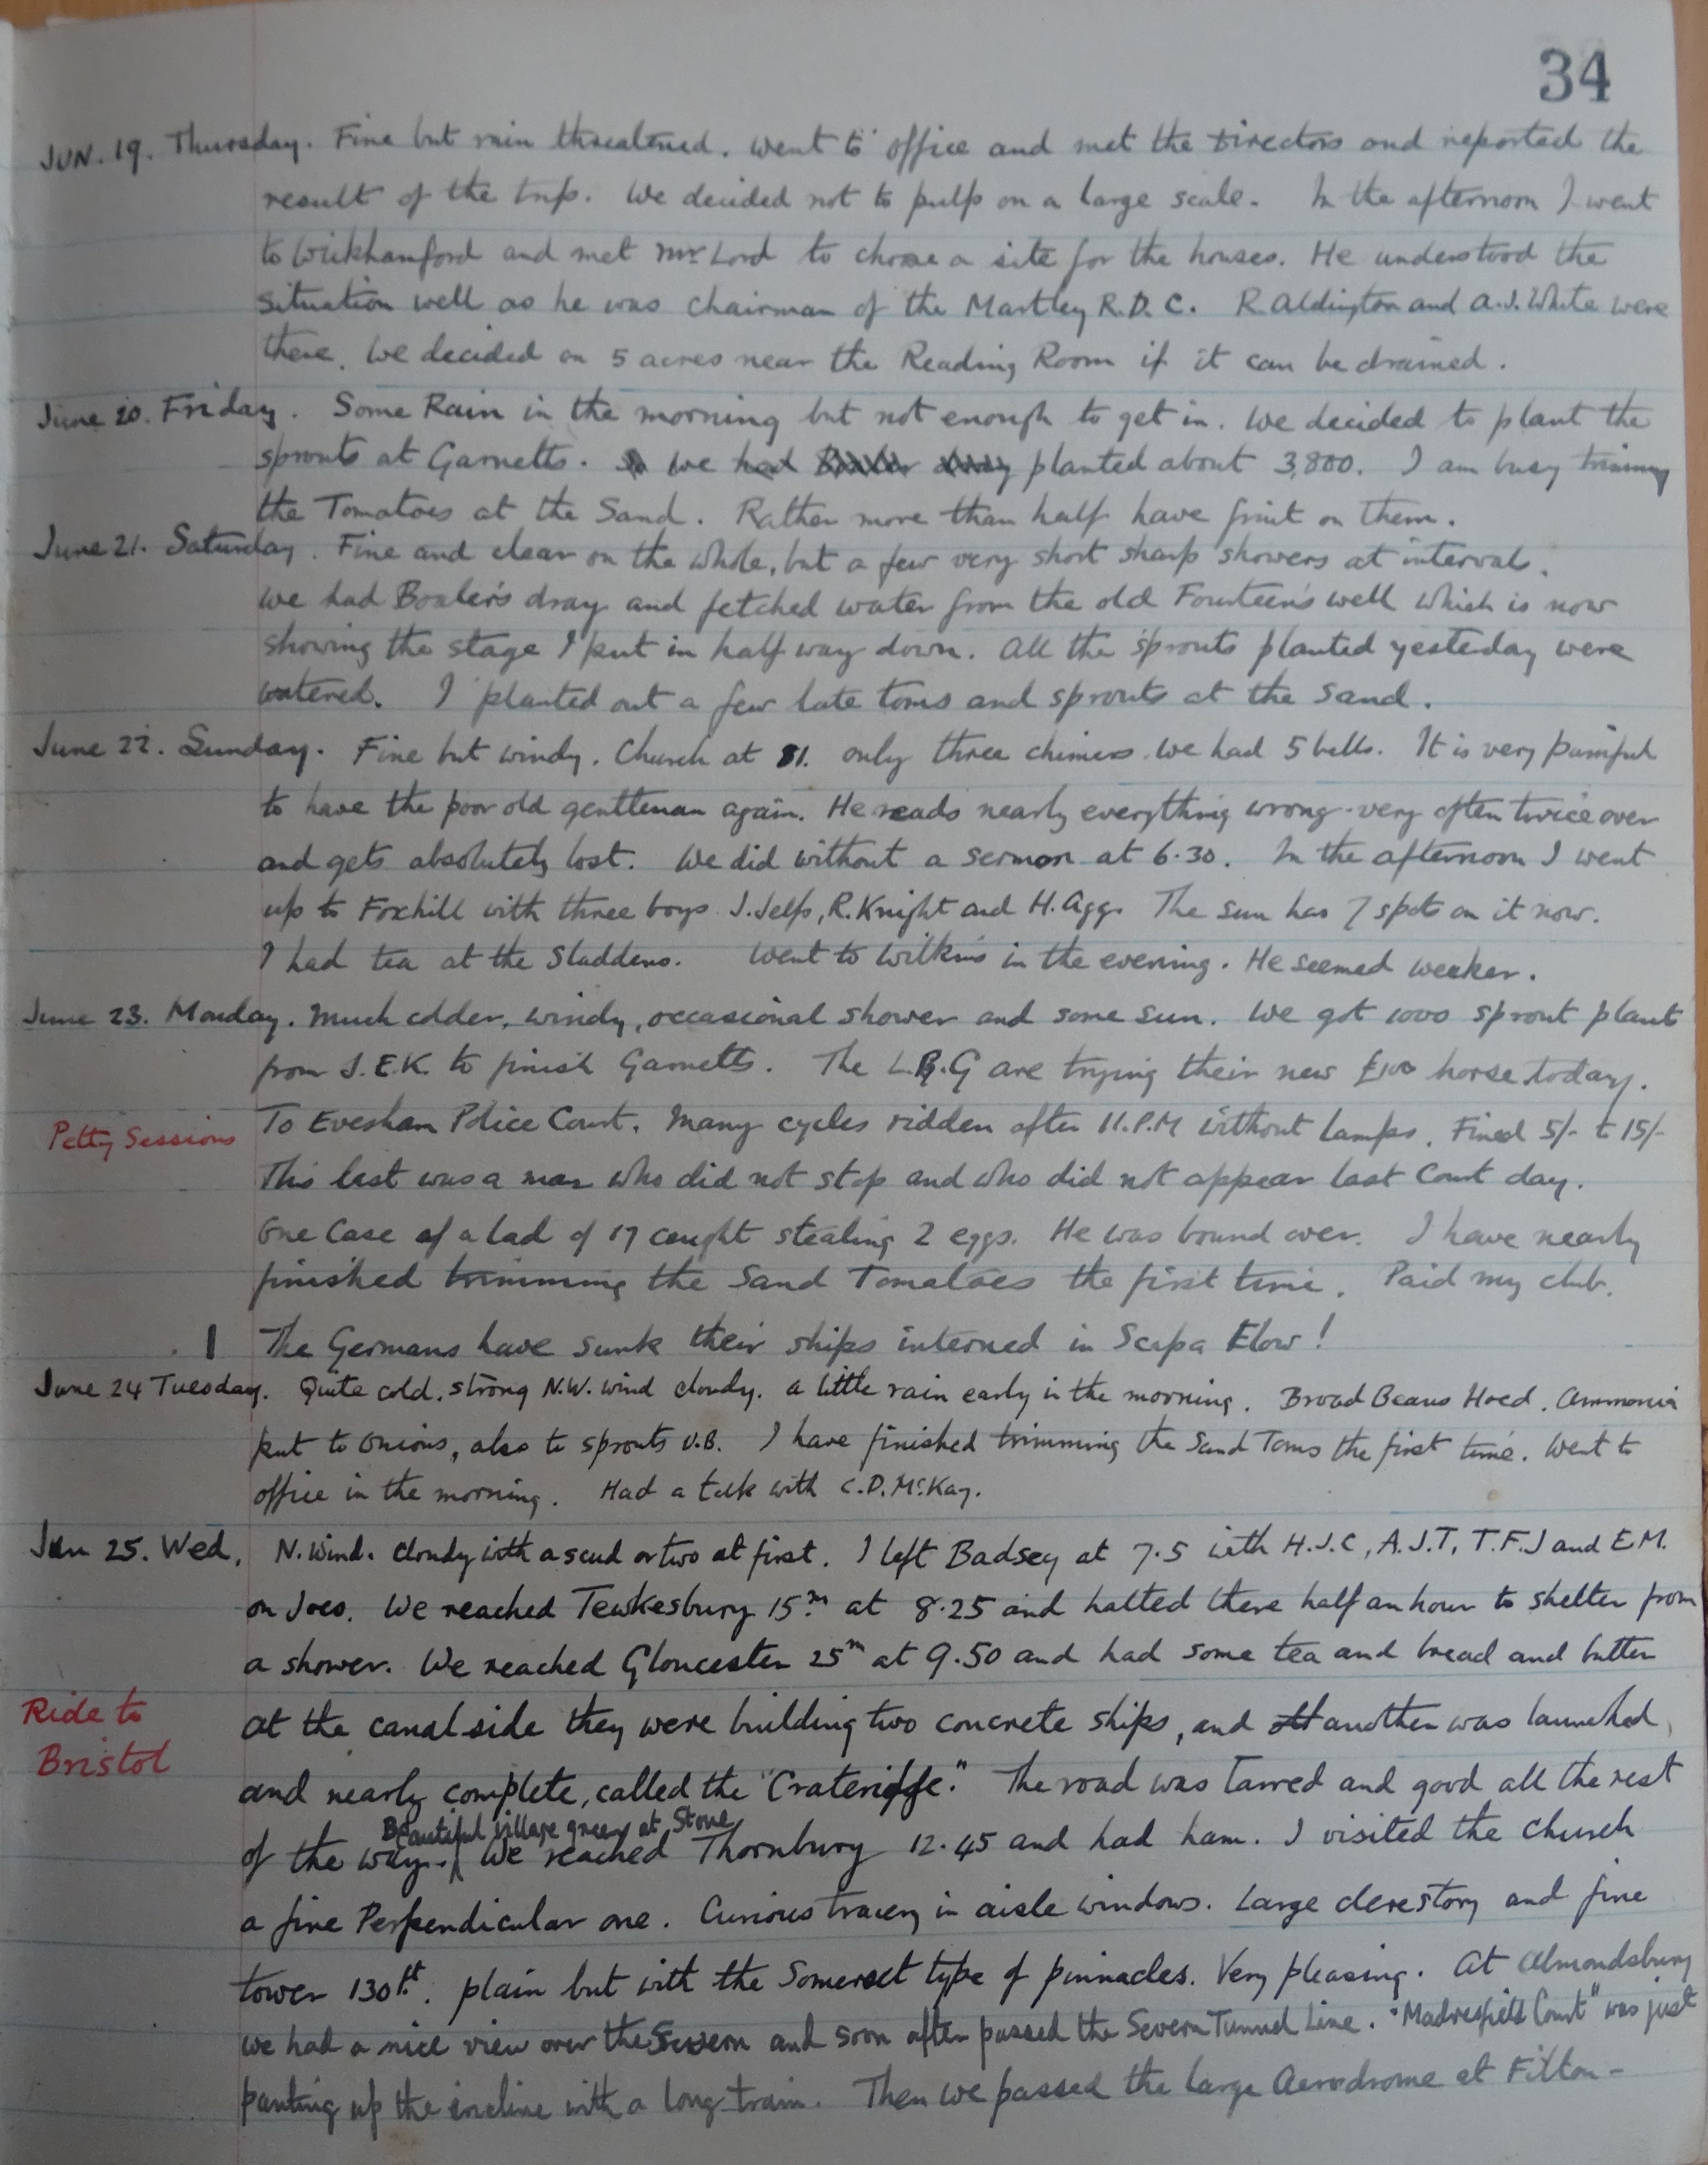 34
JUN. 19. Thursday. Fine but rain threatened. Went to office and met the Directors and reported the
result of the trip. We decided not to pulp on a large scale. In the afternoon I went
to Wickhamford and met Mr Lord to choose a site for the houses. He understood the
situation well as he was chairman of the Martley R.D.C. R. Aldington and A.J. White were
there. We decided on 5 acres near the Reading Room if it can be drained.
June 20. Friday. Some Rain in the morning but not enough to get in. We decided to plant the
sprouts at Garnetts. We had planted about 3,800. I am busy trimming
the Tomatoes at the Sand. Rather more than half have fruit on them.
June 21. Saturday. Fine and clear on the whole, but a few very short sharp showers at intervals.
We had Boaler's dray and fetched water from the old Fourteen's well which is now
showing the stage I put in half way down. All the sprouts planted yesterday were
watered. I planted out a few late toms and sprouts at the Sand.
June 22. Sunday. Fine but windy. Church at 11. only three chimers we had 5 bells. It is very painful
to have the poor old gentleman again. He reads nearly everything wrong - very often twice over
and gets absolutely lost. We did without a sermon at 6.30. In the afternoon I went
up to Foxhill with three boys J. Jelfs, R. Knight and H. Agg. The sun has 7 spots on it now.
I had tea at the Sladdens. Went to Wilkins in the evening. He seemed weaker.
June 23. Monday. Much colder, windy, occasional shower and some sun. We got 1000 sprout plants
from J.E.K. to finish Garnetts. The L.B.G are trying their new £100 horse today.
Petty Sessions To Evesham Police Court. Many cycles ridden after 11.P.M without lamps. Fined 5/- to 15/-
This last was a man who did not stop and who did not appear last Court day.
One Case of a lad of 17 caught stealing 2 eggs. He was bound over. I have nearly
finished trimming the Sand Tomatoes the first time. Paid my club.
The Germans have sunk their ships interned in Scapa Flow!
June 24 Tuesday. Quite cold, strong N.W. wind cloudy. A little rain early in the morning. Broad Beans Hoed. Ammonia
put to Onions, also to sprouts U.B. I have finished trimming the Sand Toms the first time. Went to
office in the morning. Had a talk with C.D. McKay.
Jun 25. Wed. N. Wind. Cloudy with a scud or two at first. I left Badsey at 7.5 with H.J.C, A.J.T, T.F.J and E.M.
on Joes. We reached Tewkesbury 15m at 8.25 and halted there half an hour to shelter from
a shower. We reached Gloucester 25m at 9.50 and had some tea and bread and butter
Ride to Bristol
at the canal side they were building two concrete ships, and another was launched,
and nearly complete, called the "Crateriffe." The road was Tarred and good all the rest
of the way. Beautiful village green at Stone We reached Thornbury 12.45 and had ham. I visited the church
a fine Perpendicular one. Curious tracery in aisle windows. Large clerestory and fine
tower 130ft. plain but with the Somerset type of pinnacles. Very pleasing. At Almondsbury
we had a nice view over the Severn and soon after passed the Severn Tunnel Line. "Madresfield Court" was just
panting up the incline with a long train. Then we passed the large Aerodrome at Filton -